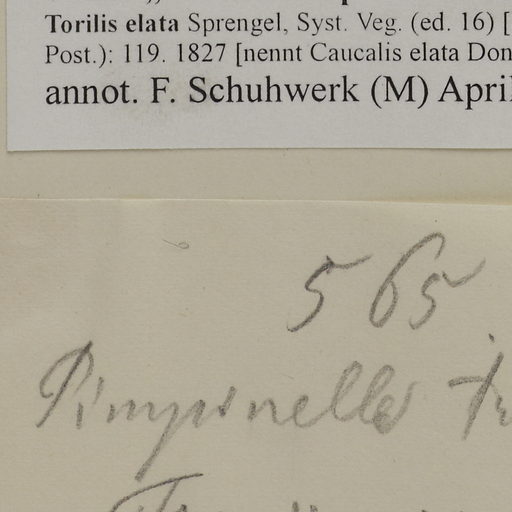 Torilis elata Sprengel, Syst. Veg. (ed. 16) [
Post.): 119. 1827 [nennt Caucalis elata Don
annot. F. Schuhwerk (M) April
565
Pimpinella